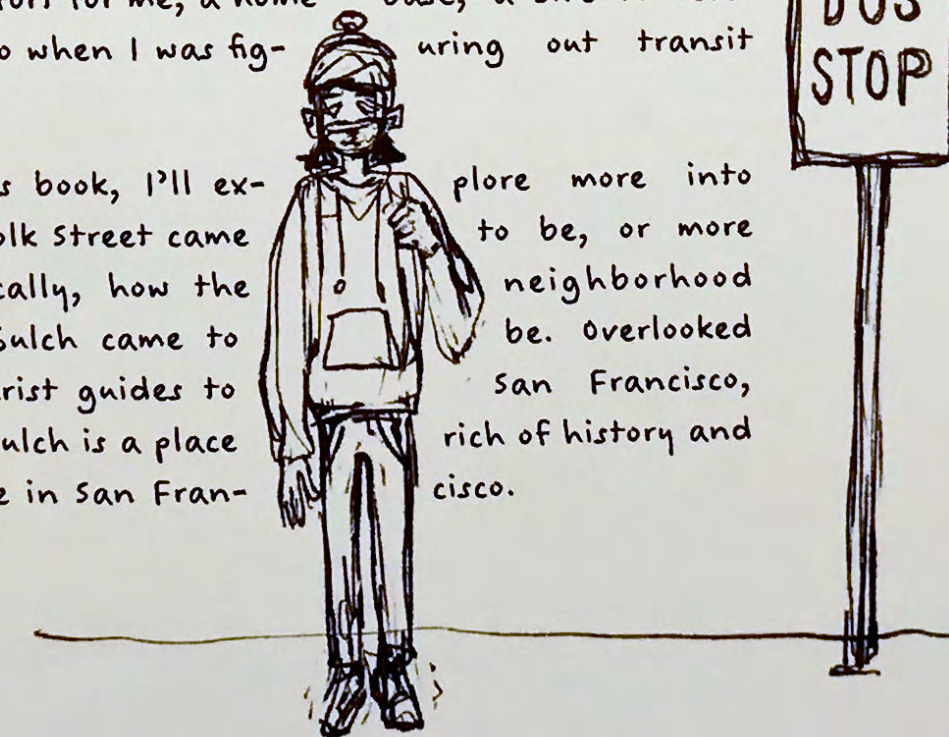 for me, a home base, a
o when I was fig- uring out transit
s book, I'll ex- plore more into
olk Street came to be, or more
cally, how the neighborhood
Gulch came to be. Overlooked
rist guides to San Francisco,
ulch is a place rich of history and
e in San Fran- cisco.
BUS
STOP